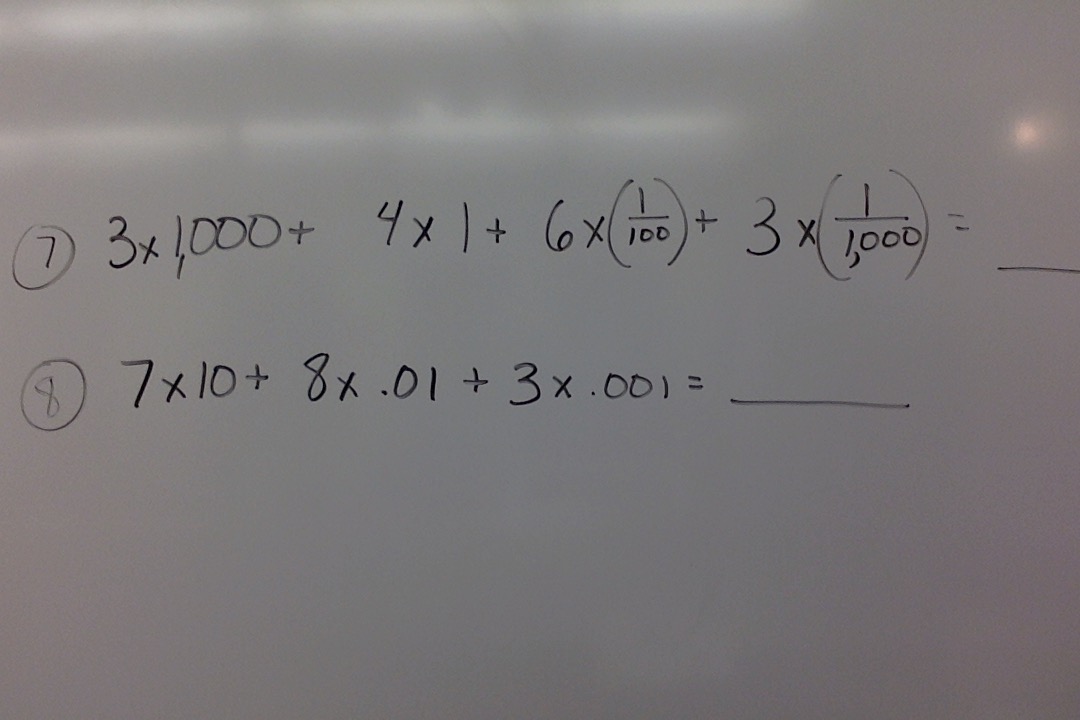 7 3x1,000+ 4x1+ 6x(1/100)+ 3x(1/1,000) = ___
8 7x10+ 8x.01+3x.001= ___